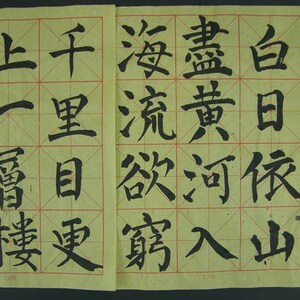 白日依山
盡黄河入
海流欲窮
千里目更
上一層樓